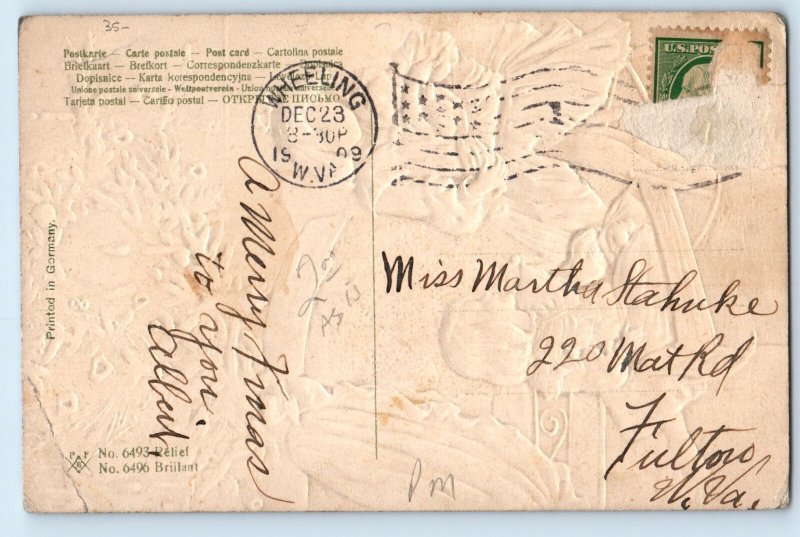 35-
Postkarte — Carte postale — Post card — Cartolina postale
Briefkaart — Brefkort — Correspondenzkarte —
Dopisnice — Karta korespondencyjna —
Unione postale universale - Weltpostverein - Union postale universelle
Tarjeta postal — Cartão postal — ОТКРЫТОЕ ПИСЬМО.
WHEELING
DEC 23
8-30P
1909
W.VA
U.S. POS
Printed in Germany.
A Merry Xmas
to you.
Albert
Miss Martha Stahnke
220 Mat Rd
Fulton
W.Va.
P F
B
No. 6493 Relief
No. 6496 Brillant
PM